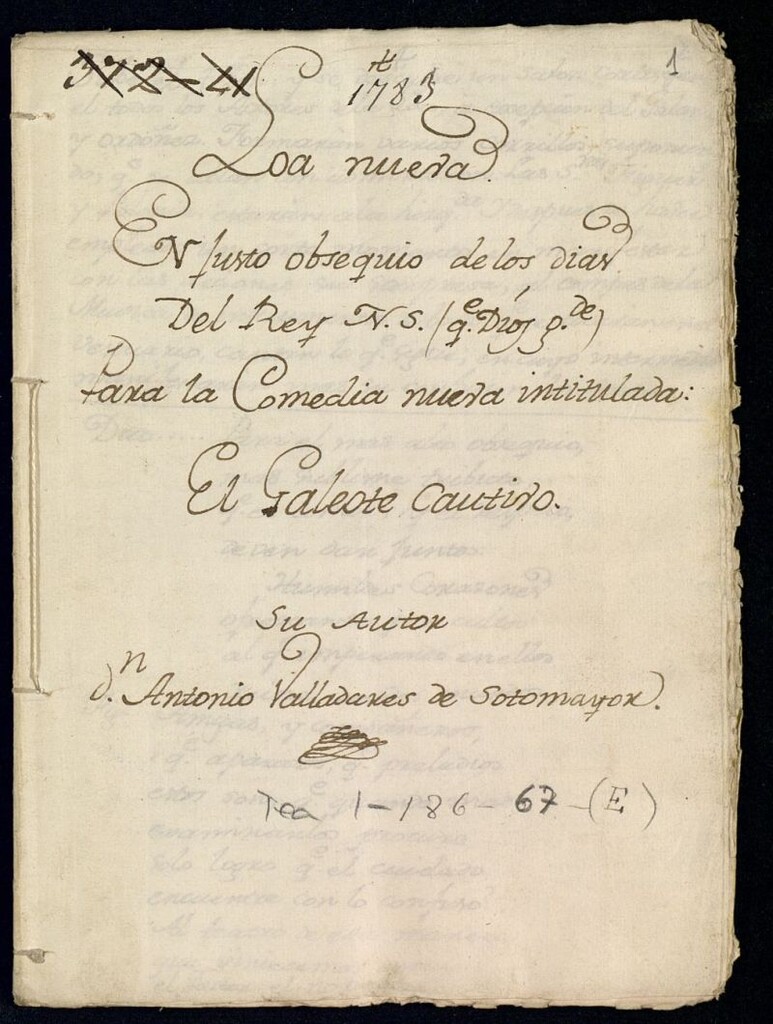 372-41
1783
1
Loa nueva.
En justo obsequio de los dias
Del Rey N. S. (q.e Dios g.de)
Para la Comedia nueva intitulada:
El Galeote Cautivo.
Su Autor
d.n Antonio Valladares de Sotomayor.
Tea 1-186-67-(E)